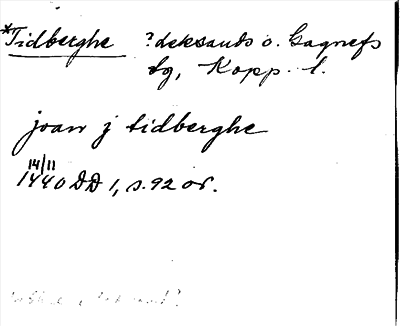 *Tidberghe ? Leksands o. Gagnefs
tg, Kopp. l.
joan j tidberghe
14/11
1440 DD 1, s. 92 or.